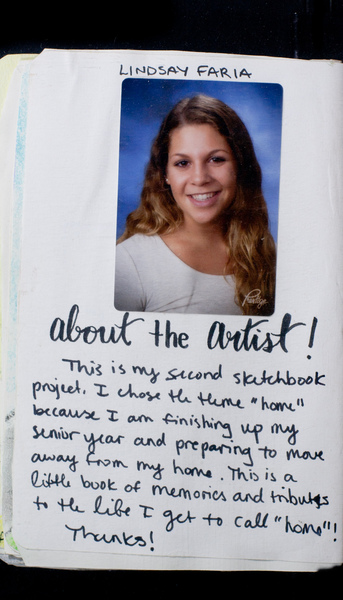 LINDSAY FARIA
Prestige
about the artist!
This is my second sketchbook
project. I chose the theme "home"
because I am finishing up my
senior year and preparing to move
away from my home. This is a
little book of memories and tributes
to the life I get to call "home"!
Thanks!